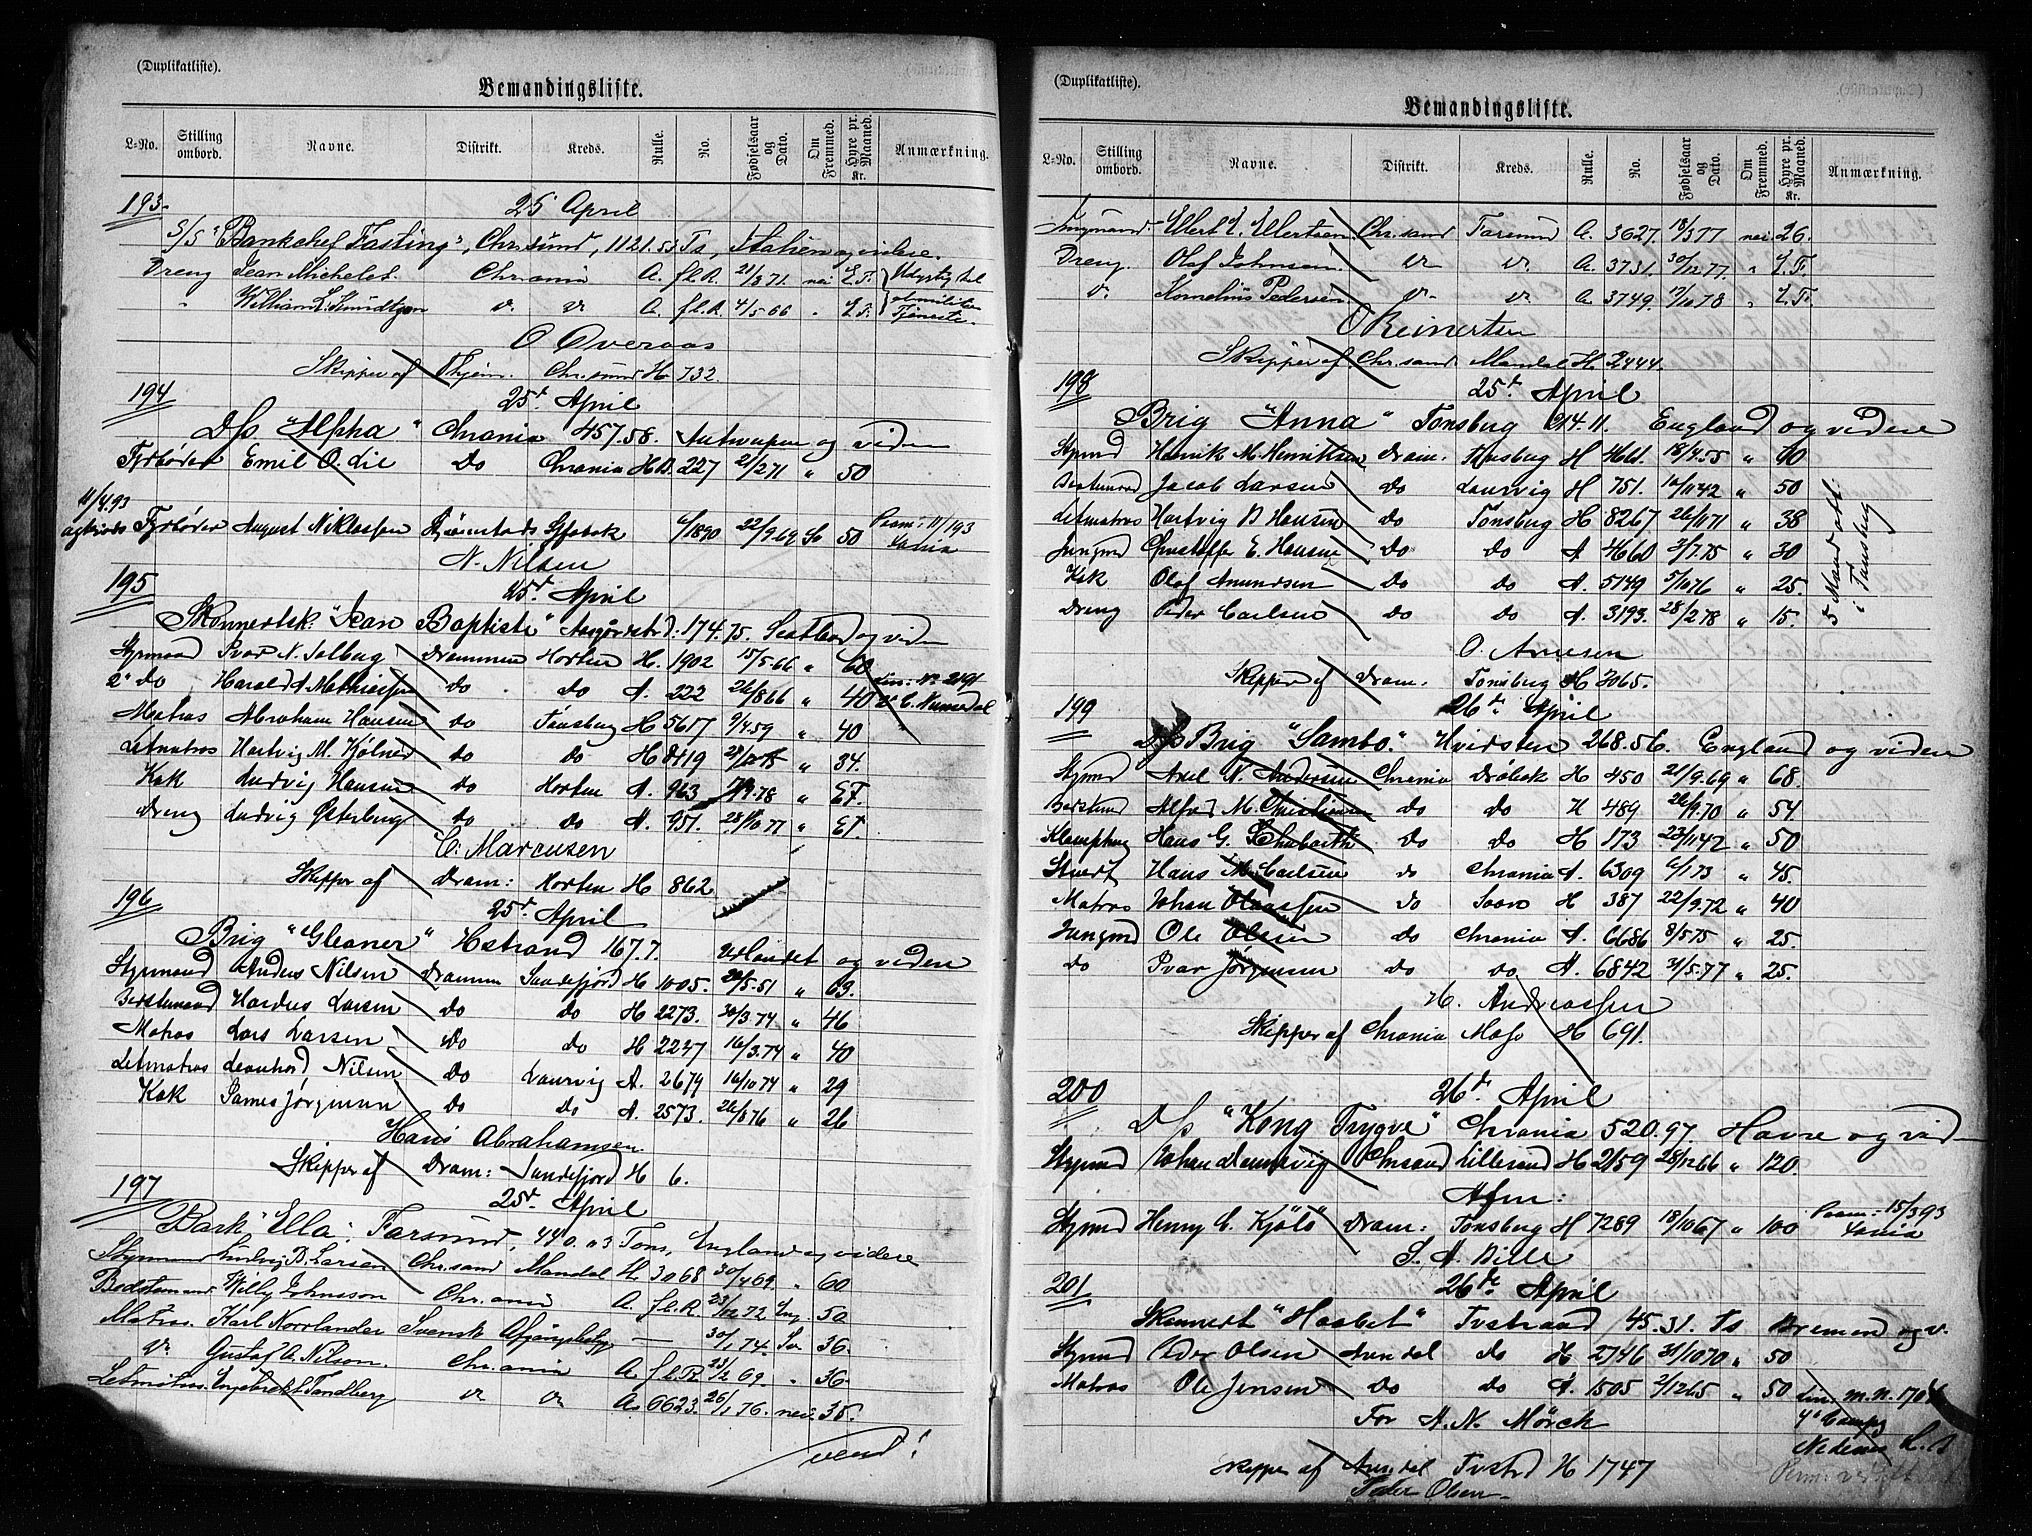 (Duplikatliste).
Bemandingsliste.
L-No. Stilling ombord. Navne. Distrikt. Kreds. Rulle. No. Fødselsaar og Dato. Om Fremmed. Hyre pr. Maaned. Kr. Anmærkning.
193. 25 April
S/S "Bankchef Fasting", Chr.sund, 1121.55 Ts, Italien og videre.
Dreng Jean Michelet. Chr.ania A. fl.R. 21/8 71. nei E.F. Udygtig til
" William L. Smidtgen v. v. A. fl.R. 4/5 66 " E.F. al militær Tjeneste.
O Overaas
Skipper af Thjem. Chr.sund H. 732.
194 25d. April
D/s "Alpha" Chrania 457.58. Antwerpen og viden
Fyrbøder Emil O. Lie Do Chrania H.D. 227 2/2 71 " 50
11/4.93
Fyrbøder August Niklassen 6/1890 22/9.69 Sv 50
N. Nilsen
195 25d. April
Skonnertsk: "Jean Baptiste" Aasgårdstrd: 174.75. Scotland og viden
Styrmand Ivar N. Solberg Drammen Horten H. 1902 15/5.66 " 60
2' do Harald A Mathisen do do A. 222 26/8 66 " 40
Matros Abraham Hansen do Tønsberg H 5617 9/4.59 " 40
Letmatros Hartvig M. Kølner do do H 8419 " 34.
Kok Ludvig Hansen do Horten A. 963 " EF.
Dreng Ludvig Østerberg do do A. 951. 28/10 77 " EF.
C. Marcusen
Skipper af Dram: Horten H 862
196 25d. April
Brig "Gleaner" Hstrand 167.7. Udlandet og videre
Styrmand Anders Nilsen Drammen Sandefjord H 1005. 29/5.51 " 69.
Bestemand Hardus Larsen do do H 2273. 30/3.74 " 46
Matros Lars Larsen do do H 2247 16/3.74 " 40
Letmatros Leonhard Nilsen do Laurvig A. 2679 16/10 74 " 29
Kok James Jørgensen do do A. 2573. 26/1 76 " 26
Hans Abrahamsen
Skipper af Dram: Sandefjord H 6.
197 25d. April
Bark "Ella", Farsund, 440.03 Tons, England og videre
Styrmand Ludvig B. Larsen Chr.sand Mandal H. 3068 30/4 69. " 60
Bedstemand Willy Johnsson Chr.ania A. fl.R. 23/12 72 Eng. 50
Matros. Karl Norrlander Svensk Afgangsbetyg — 30/1 74. Sv 36.
v. Gustaf A. Nilson. Chr.ania A. fl.R. 23/2 69. " 36
Letmatros. Engebrekt Tandberg v. v. A. 6623. 26/1 76. nei 35.
vend!
(Duplikatliste).
Bemandingsliste.
L-No. Stilling ombord. Navne. Distrikt. Kreds. Rulle. No. Fødselsaar og Dato. Om Fremmed. Hyre pr. Maaned. Kr. Anmærkning.
Jungmand Ellert E. Ellertsen Chr.sand Farsund A. 3627. 18/3 77 nei 26.
Dreng. Olaf Johnsen v. v. A. 3731. 30/12 77. " E.F.
v. Kornelius Pedersen v. v. A. 3749. 17/10 78 " E.F.
O Reinertsen
Skipper af Chr.sand Mandal H 2444.
198 25d. April
Brig "Anna" Tønsberg 214.11. England og videre
Styrmd Henrik M. Henriksen Dram. Tønsberg H 4611. 18/4.55 " 70
Bestemand Jacob Larsen do Laurvig H 751. 10/11 42 " 50
Letmatros Hartvig B Hansen do Tønsberg H 8267 26/11 71 " 38
Jungmd Christoffer E. Hansen do do A 4660 3/7.75 " 30
Kok Olaf Amundsen do do A. 5149 5/10 76 " 25.
Dreng Peder Carlsen do do A. 3193. 28/2 78 " 15.
5 Mand afl. i Tønsberg
O. Arnesen
Skipper af Dram. Tønsberg H 3065.
199 26d. April
Brig "Sambo." Hvidsten 268.56. England og videre
Styrmd Axel N. Andersen Chrania Drøbak H 450 21/9.69 " 68.
Bestemd Alfred M. Christiansen do do H 489 26/9.70 " 54
Hans G. do do H 173 22/11 42 " 50
Stuert Hans M. Carlsen do Chrania A. 6309 6/1 73 " 45.
Matros Johan Olaussen do Soon H 387 22/9.72 " 40
Jungmd Ole Olsen do Chrania A. 6686 8/5 75 " 25.
do Ivar Jørgensen do do A. 6842 31/5.77 " 25.
H. Andreassen
Skipper af Chrania Moss H 691.
200 26d. April
D/s "Kong Trygve" Chrania 520.97. Havre og vid
Styrmd Johan Dannevig Chrsand Lillesand H 2159 28/12 66 " 120.
Afm:
Styrmd Henry C. Kjölö Dram: Tønsberg H 7289 18/10 67 " 100 Paam: 15/3 93
S. A. Bille
201 26d. April
Skonnert "Haabet" Tvstrand 145.31. Ts Bremen og v.
Styrmd Peder Olsen Arendal do H 2746 31/10 70 " 50
Matros Ole Jensen do do A. 1505 2/12 65 " 50
For A. N. Mörck
Skipper af Arendal Tvstrd H 1747
Peder Olsen